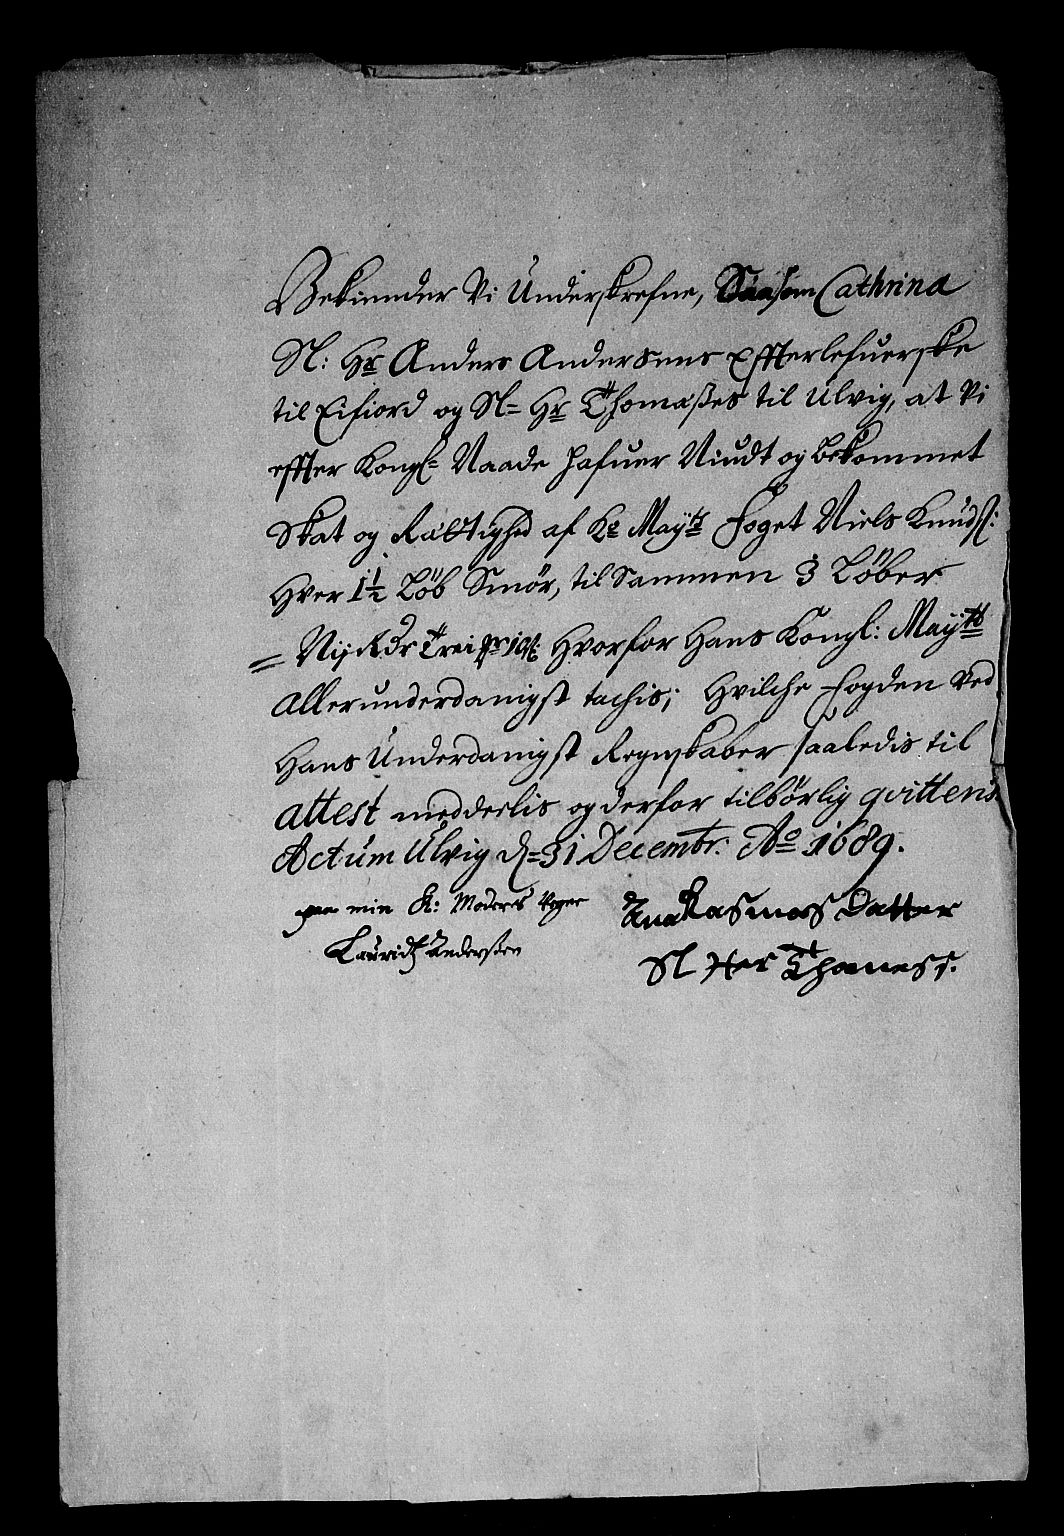 Bekiender Vi Underskrefne, Saasom Cathrina
Sl: Hr Anders Andersens Effterlefuerske
til Eifiord og Sl= Hr Thomæßes til Ulvig, at Vi
effter Kongl= Naade hafuer Niudt og bekommet
Skat og Rættighed af Ko Mayts Foget Niels Knuds:
Hver 1½ Løb Smør, til Sammen 3 Løber
= Nij Rdr Hvorfor Hans Kongl: Mayts
allerunderdanigst tachis; Hvilche Fogden ved
Hans Underdanigst Regnskaber saaledis til
attest meddeelis og derfor tilbørlig qvitteris.
Actum Ulvig d= 31 Decembr: Ao 1689.
paa min K: Moders Vegne
Lauridtz Anderßen
Ana Rasmos Datter
Sl Her Thomess.